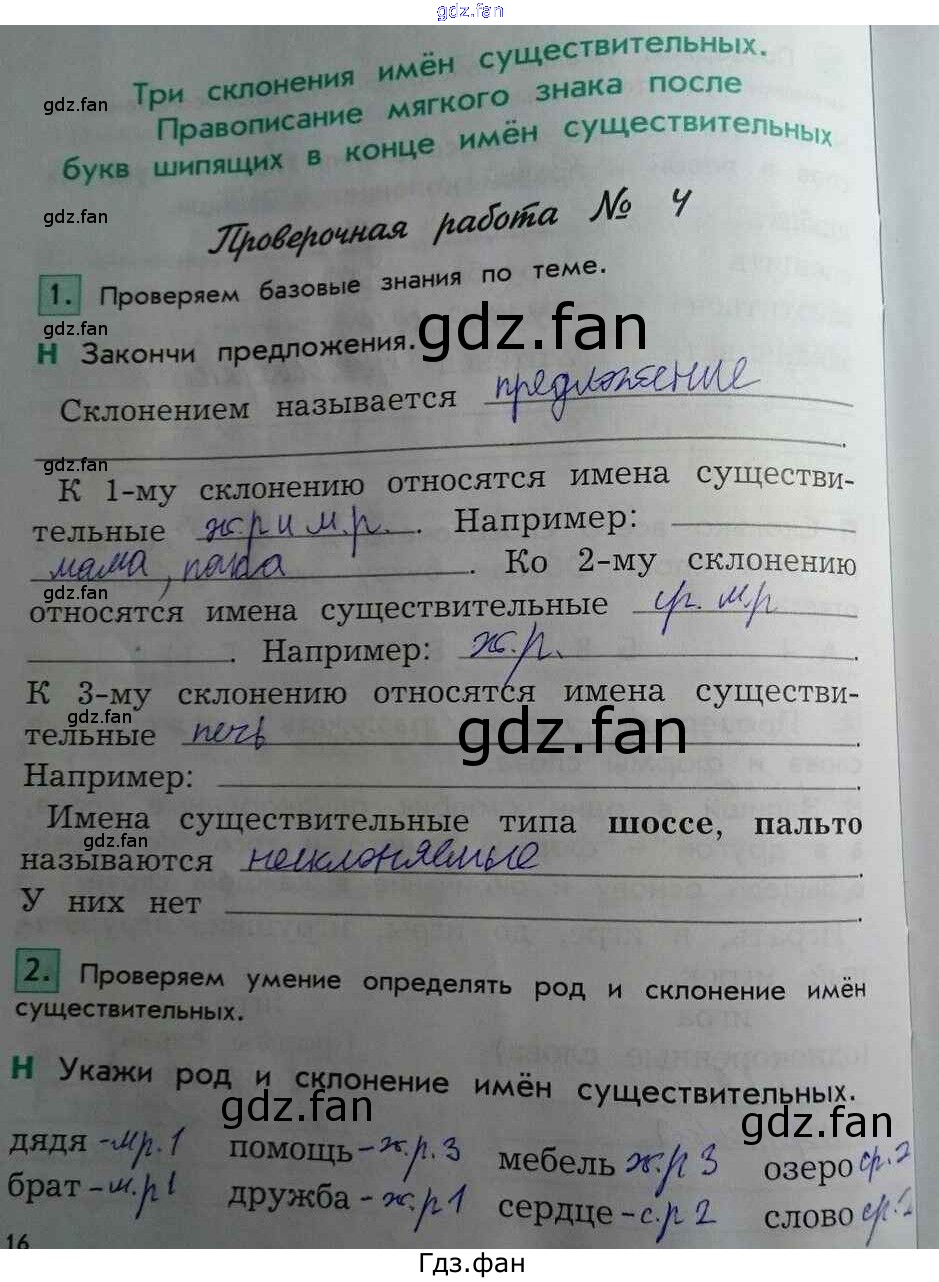 gdz.fan
Три склонения имён существительных.
gdz.fan
Правописание мягкого знака после
букв шипящих в конце имён существительных
gdz.fan
Проверочная работа № 4
1. Проверяем базовые знания по теме.
gdz.fan
gdz.fan
Н Закончи предложения.
Склонением называется предложение
.
gdz.fan
К 1-му склонению относятся имена существи-
тельные ж.р и м.р. . Например:
мама, папа . Ко 2-му склонению
gdz.fan
относятся имена существительные ср. м.р
. Например: ж.р. .
К 3-му склонению относятся имена существи-
gdz.fan
gdz.fan
тельные печь .
Например: .
Имена существительные типа шоссе, пальто
gdz.fan
называются несклоняемые
У них нет .
2. Проверяем умение определять род и склонение имён
существительных.
Н Укажи род и склонение имён существительных.
gdz.fan
gdz.fan
дядя -м.р. 1 помощь - ж.р. 3 мебель ж.р 3 озеро ср. 2
брат - м.р 1 дружба - ж.р 1 сердце - с.р 2 слово ср. 2
16
Гдз.фан